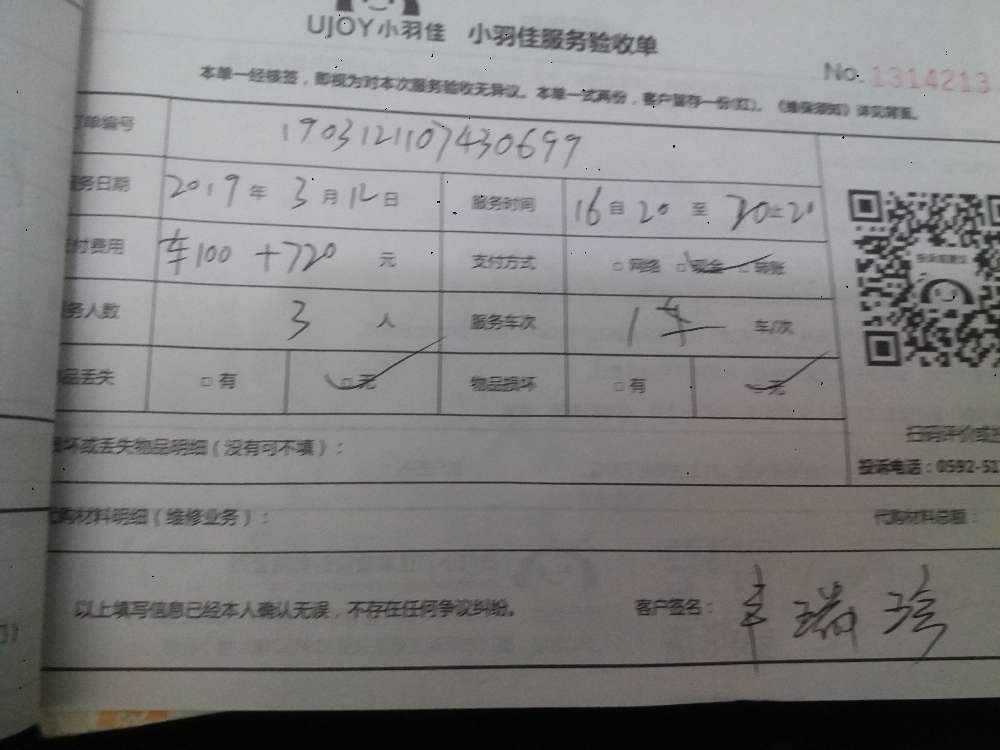 UJOY小羽佳 小羽佳服务验收单
No. 1314213
本单一经核签，即视为对本次服务验收无异议。本单一式两份，客户留存一份(红)。《维保须知》详见背面。
单编号 1903121107430699
务日期 2019年3月12日 服务时间 16自20至20止20
付费用 车100+720元 支付方式 □网络 □现金 □转账
务人数 3人 服务车次 1车 车/次
品丢失 □有 □无 物品损坏 □有 □无
坏或丢失物品明细（没有可不填）：
扫码评价或
投诉电话：0592-51
购材料明细（维修业务）： 代购材料总额：
以上填写信息已经本人确认无误，不存在任何争议纠纷。 客户签名：辛瑞玲